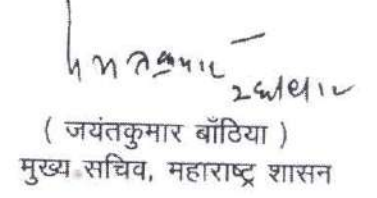 ( जयंतकुमार बाँठिया )
मुख्य सचिव, महाराष्ट्र शासन